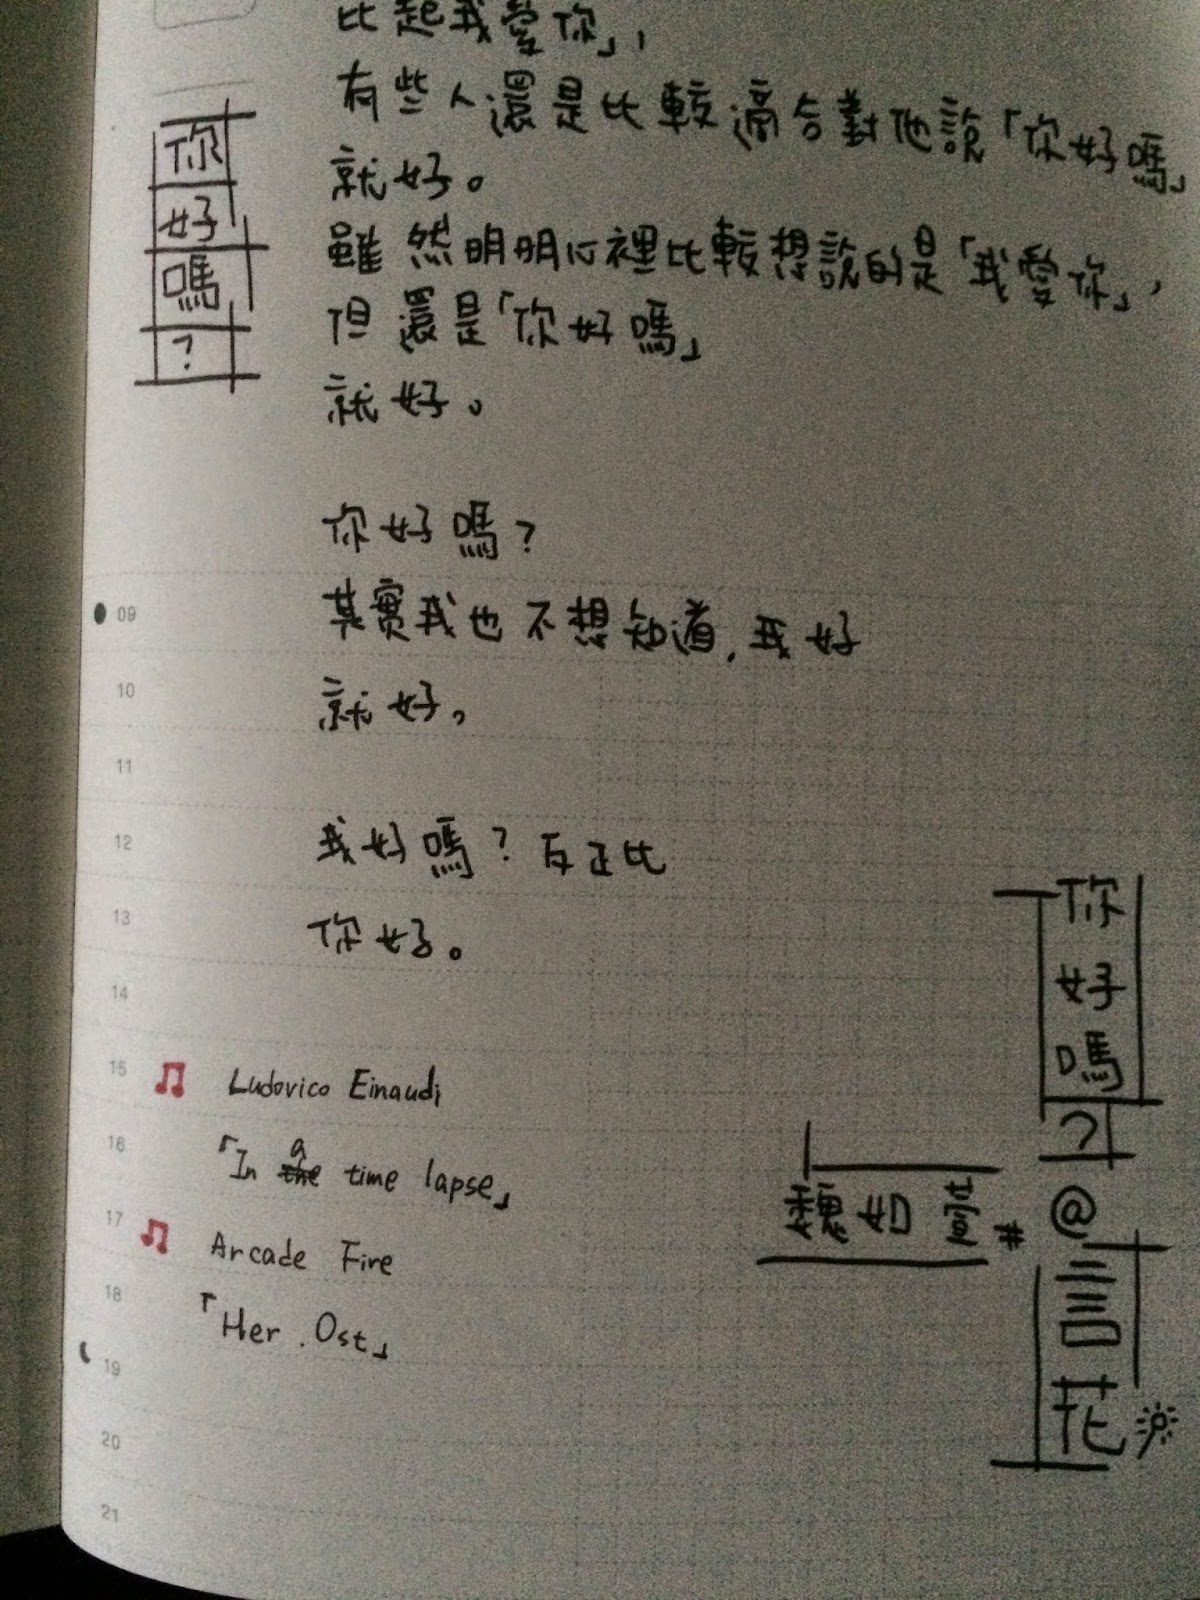 你
好
嗎
?
比起我愛你」,
有些人還是比較適合對他說「你好嗎」
就好。
雖然明明心裡比較想說的是「我愛你」,
但還是「你好嗎」
就好。
你好嗎?
其實我也不想知道,我好
就好。
我好嗎?反正比
你好。
09
10
11
12
13
14
15
16
17
18
19
20
21
Ludovico Einaudi
「In a time lapse」
Arcade Fire
「Her . Ost」
魏如萱 #
你
好
嗎
?
@
言
花